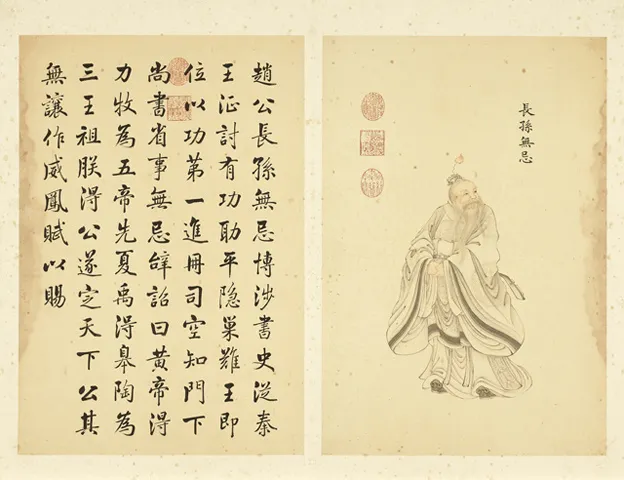 長孫無忌
趙公長孫無忌博涉書史從秦
王征討有功助平隐巢難王即
位以功第一進冊司空知門下
尚書省事無忌辤詔曰黄帝得
力牧為五帝先夏禹得皋陶為
三王祖朕得公遂定天下公其
無讓作威鳳賦以賜